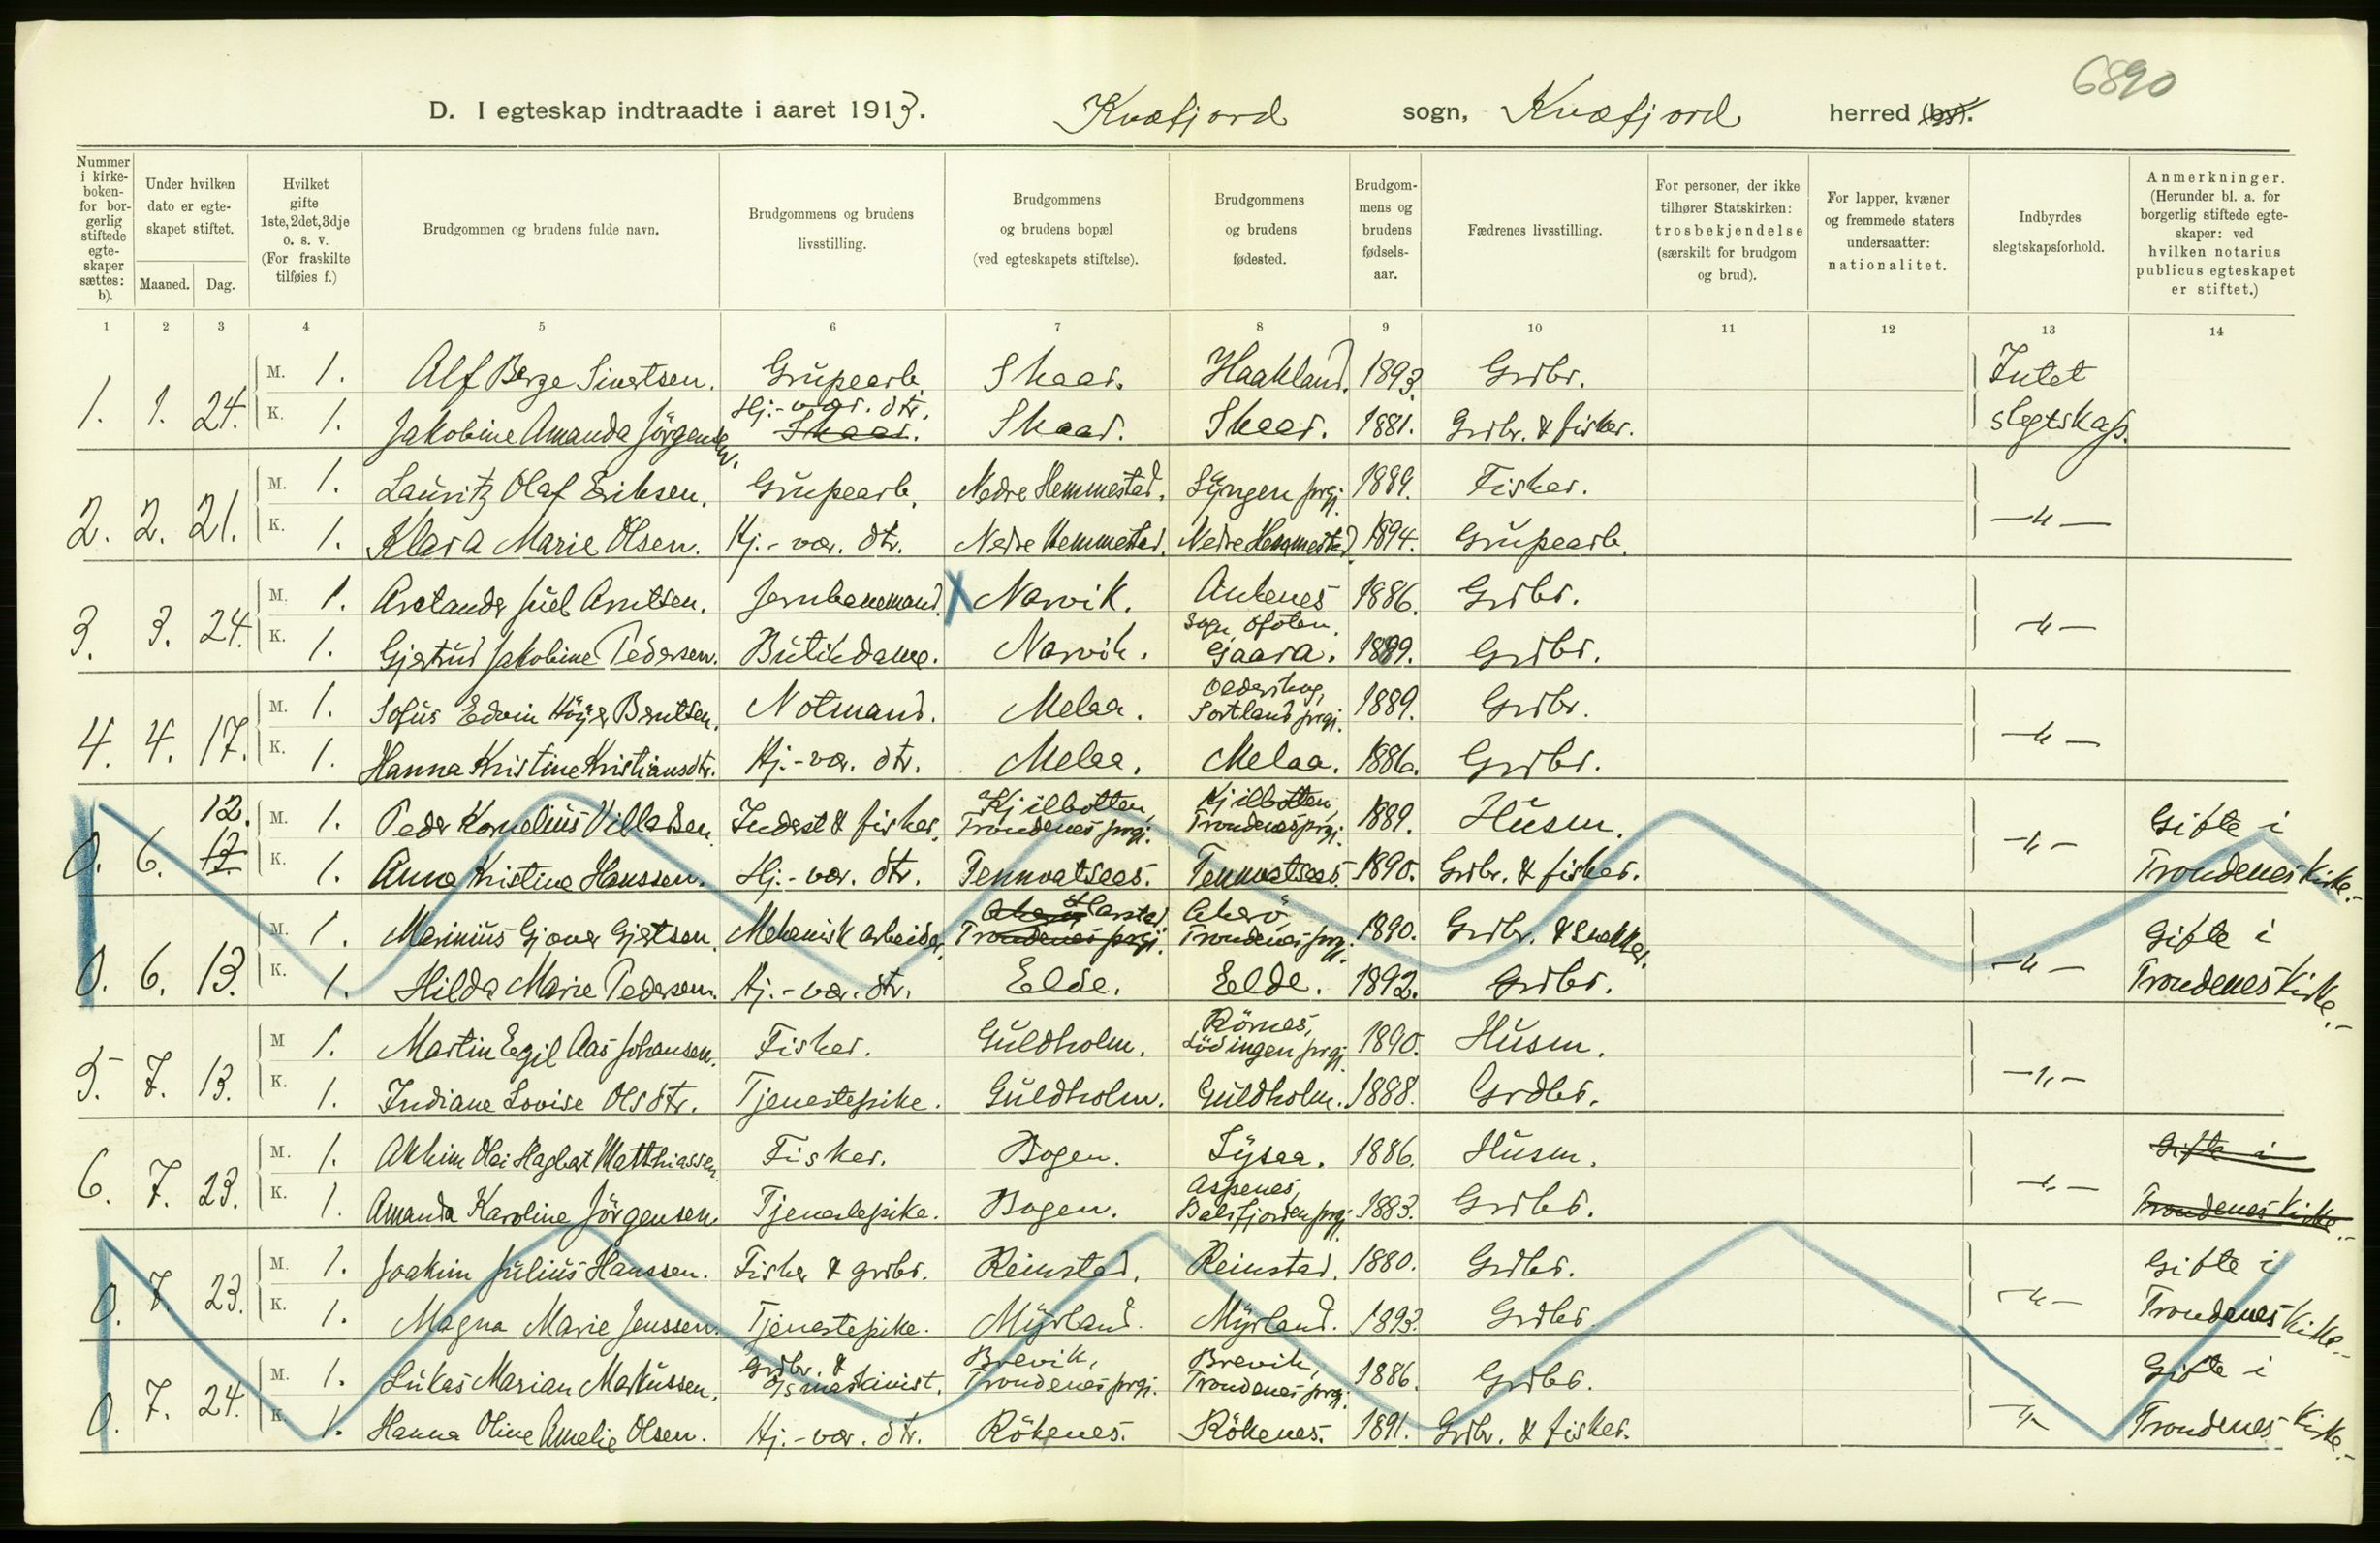 6890
D. I egteskap indtraadte i aaret 1913. Kvæfjord sogn, Kvæfjord herred (by).
Nummer i kirke-boken- for bor-gerlig stiftede egte-skaper sættes: b).
Under hvilken dato er egte-skapet stiftet.
Maaned. Dag.
Hvilket gifte 1ste, 2det, 3dje o. s. v. (For fraskilte tilføies f.)
Brudgommen og brudens fulde navn.
Brudgommens og brudens livsstilling.
Brudgommens og brudens bopæl (ved egteskapets stiftelse).
Brudgommens og brudens fødested.
Brudgom-mens og brudens fødsels-aar.
Fædrenes livsstilling.
For personer, der ikke tilhører Statskirken: trosbekjendelse (særskilt for brudgom og brud).
For lapper, kvæner og fremmede staters undersaatter: nationalitet.
Indbyrdes slegtskapsforhold.
Anmerkninger. (Herunder bl. a. for borgerlig stiftede egte-skaper: ved hvilken notarius publicus egteskapet er stiftet.)
1 2 3 4 5 6 7 8 9 10 11 12 13 14
1. 1. 24. M. 1. Alf Berge Sivertsen. Grubearb. Skaar. Haakland. 1893. Grdbr. Intet
K. 1. Jakobine Amanda Jörgensen. Hj.-vær. dtr. Skaar. Skaar. Skaar. 1881. Grdbr. & fisker. slegtskap.
2. 2. 21. M. 1. Lauritz Olaf Eriksen. Grubearb. Nedre Hemmestad. Lyngen prgj. 1889. Fisker.
K. 1. Klara Marie Olsen. Hj.-vær. dtr. Nedre Hemmestad. Nedre Hemmestad. 1894. Grubearb. —"—
3. 3. 24. M. 1. Arntsen. Jernbanemand. X Narvik. Ankenes 1886. Grdbr.
sogn, Ofoten.
K. 1. Gjertrud Jakobine Pedersen. Butikdame. Narvik. Gaara. 1889. Grdbr. —"—
4. 4. 17. M. 1. Sofus Edvin Höjer Berntsen. Notmand. Melaa. Oldershog, Sortland prgj. 1889. Grdbr.
K. 1. Hanna Kristine Kristiansdtr. Hj.-vær. dtr. Melaa. Melaa. 1886. Grdbr. —"—
0. 6. 12. 12. M. 1. Peder Kornelius Villadsen. Inderst & fisker. Kjilbotten, Trondenes prgj. Kjilbotten, Trondenes prgj. 1889. Husm. Gifte i
K. 1. Anna Kristine Hanssen. Hj.-vær. dtr. Tennvatsees. Tennvatsees. 1890. Grdbr. & fisker. —"— Trondenes Kirke.-
0. 6. 13. M. 1. Marinius Gjøver Gjertsen. Mekanisk arbeider. Akerö Harstad Trondenes prgj. Akerö Trondenes prgj. 1890. Grdbr. & snekker. Gifte i
K. 1. Hilda Marie Pedersen. Hj.-vær. dtr. Elde. Elde. 1892. Grdbr. —"— Trondenes Kirke.-
5. 7. 13. M 1. Martin Egil Aas Johansen. Fisker. Guldholm. Römes, Lödingen prgj. 1890. Husm.
K. 1. Indiane Lovise Olsdtr. Tjenestepike. Guldholm. Guldholm. 1888. Grdbr. —"—
6. 7. 23. M. 1. Akkim Olai Hagbart Matthiassen. Fisker. Bogen. Sysaa. 1886. Husm. Gifte i
K. 1. Amanda Karoline Jörgensen. Tjenestepike. Bogen. Aspenes, Balsfjorden prgj. 1883. Grdbr. —"— Trondenes Kirke.-
0. 7. 23. M. 1. Joakim Julius Hanssen. Fisker & grdbr. Reinstad. Reinstad. 1880. Grdbr. Gifte i
K. 1. Magna Marie Jenssen. Tjenestepike. Myrland. Myrland. 1893. Grdbr. —"— Trondenes Kirke.-
0. 7. 24. M. 1. Lukas Marian Markussen. Grdbr. & maskinist. Brevik, Trondenes prgj. Brevik, Trondenes prgj. 1886. Grdbr. Gifte i
K. 1. Hanna Oline Amelie Olsen. Hj.-vær. dtr. Rökenes. Rökenes. 1891. Grdbr. & fisker. —"— Trondenes Kirke.-